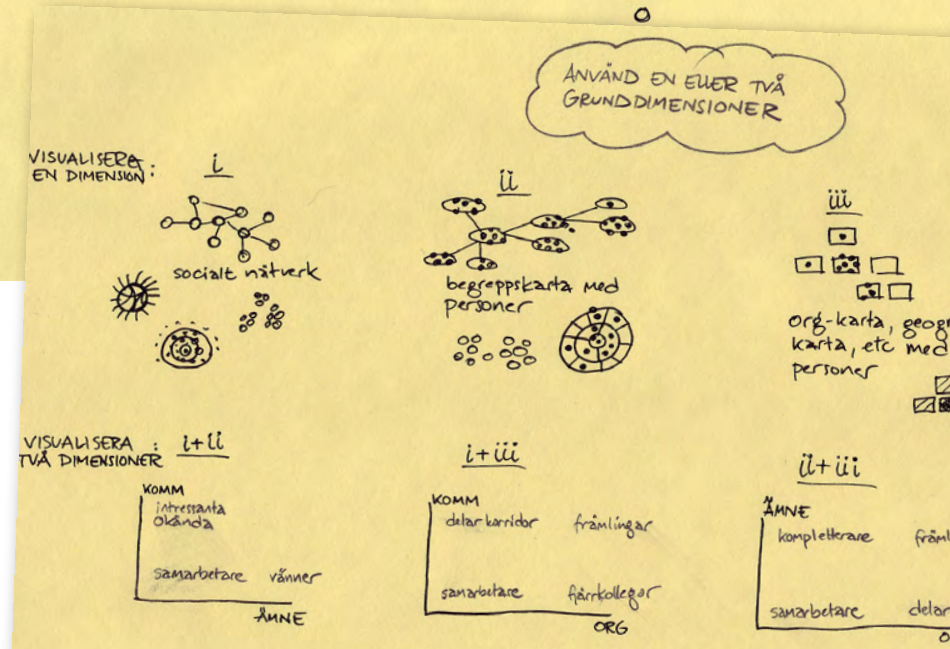 ANVÄND EN ELLER TVÅ
GRUNDDIMENSIONER
VISUALISERA
EN DIMENSION:
i
ii
iii
socialt nätverk
begreppskarta med
personer
org-karta, geogr
karta, etc med
personer
VISUALISERA :
TVÅ DIMENSIONER
i+ii
i+iii
ii+iii
KOMM
intressanta
okända
samarbetare vänner
ÄMNE
KOMM
delar korridor främlingar
samarbetare fjärrkollegor
ORG
ÄMNE
kompletterare främl
samarbetare delar
O